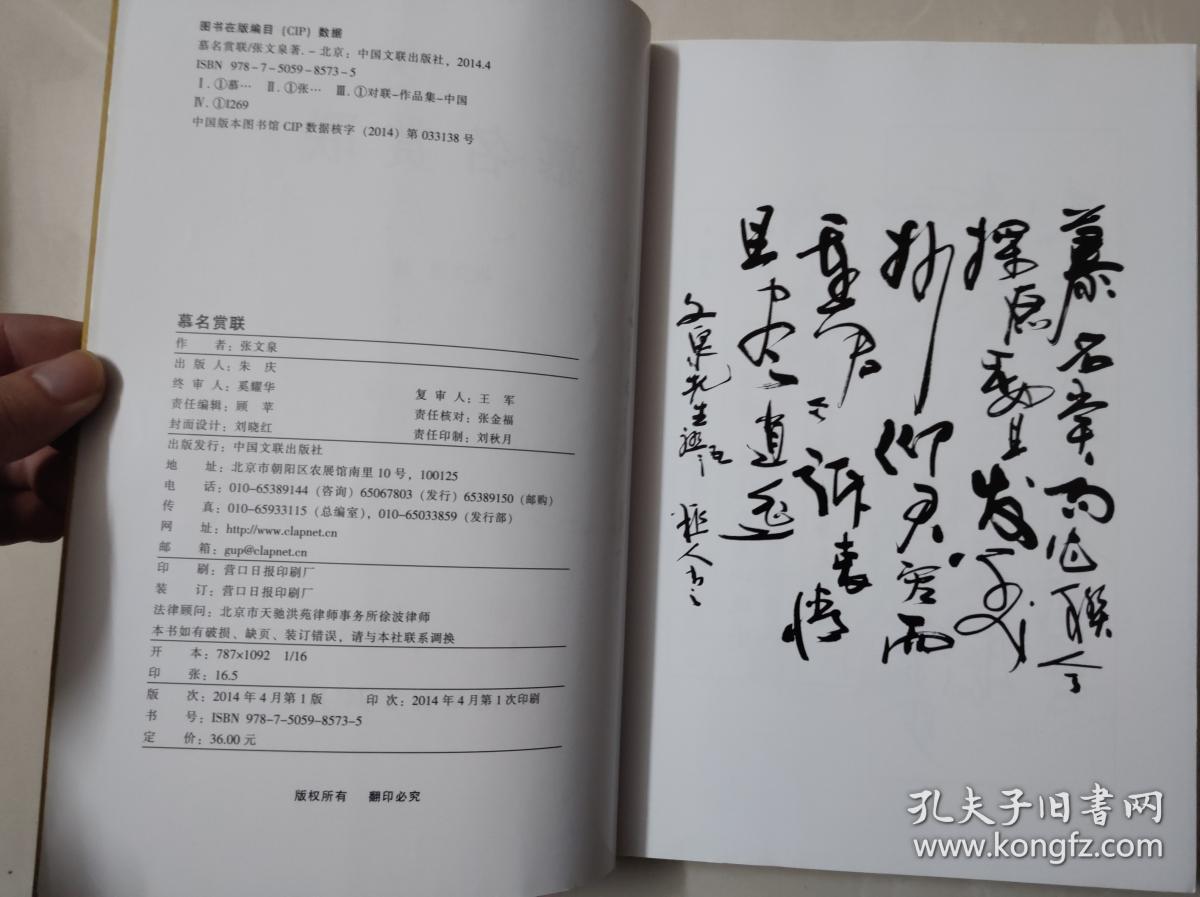 图书在版编目(CIP)数据
慕名赏联/张文泉著.－北京:中国文联出版社,2014.4
ISBN 978-7-5059-8573-5
Ⅰ.①慕… Ⅱ.①张… Ⅲ.①对联-作品集-中国
Ⅳ.①I269
中国版本图书馆CIP数据核字(2014)第033138号
慕名赏联
作 者:张文泉
出版人:朱 庆
终审人:奚耀华 复审人:王 军
责任编辑:顾 苹 责任校对:张金福
封面设计:刘晓红 责任印制:刘秋月
出版发行:中国文联出版社
地 址:北京市朝阳区农展馆南里10号,100125
电 话:010-65389144(咨询)65067803(发行)65389150(邮购)
传 真:010-65933115(总编室),010-65033859(发行部)
网 址:http://www.clapnet.cn
邮 箱:gup@clapnet.cn
印 刷:营口日报印刷厂
装 订:营口日报印刷厂
法律顾问:北京市天驰洪苑律师事务所徐波律师
本书如有破损、缺页、装订错误,请与本社联系调换
开 本:787×1092 1/16
印 张:16.5
版 次:2014年4月第1版 印 次:2014年4月第1次印刷
书 号:ISBN 978-7-5059-8573-5
定 价:36.00元
版权所有 翻印必究
慕名 而 联兮
探 且发
仰 容而
诉衷情
且 逍遥
文泉先生
孔夫子旧书网
www.kongfz.com